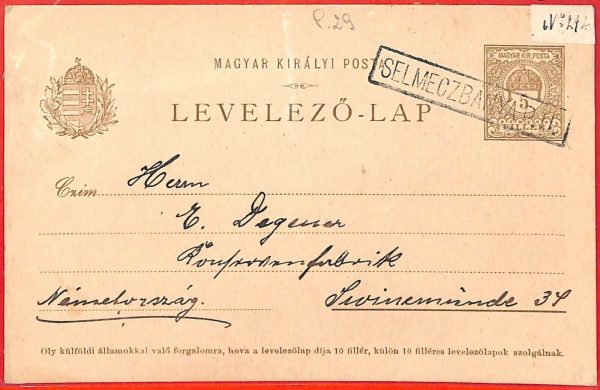 P. 29
MAGYAR KIRÁLYI POSTA
MAGYAR KIR. POSTA
5
FILLER
LEVELEZŐ-LAP
Czim:
Herrn
E. Degener
Konservenfabrik
Németország.
Swinemünde 34
Oly külföldi államokkal való forgalomra, hova a levelezőlap dija 10 fillér, külön 10 filléres levelezőlapok szolgálnak.